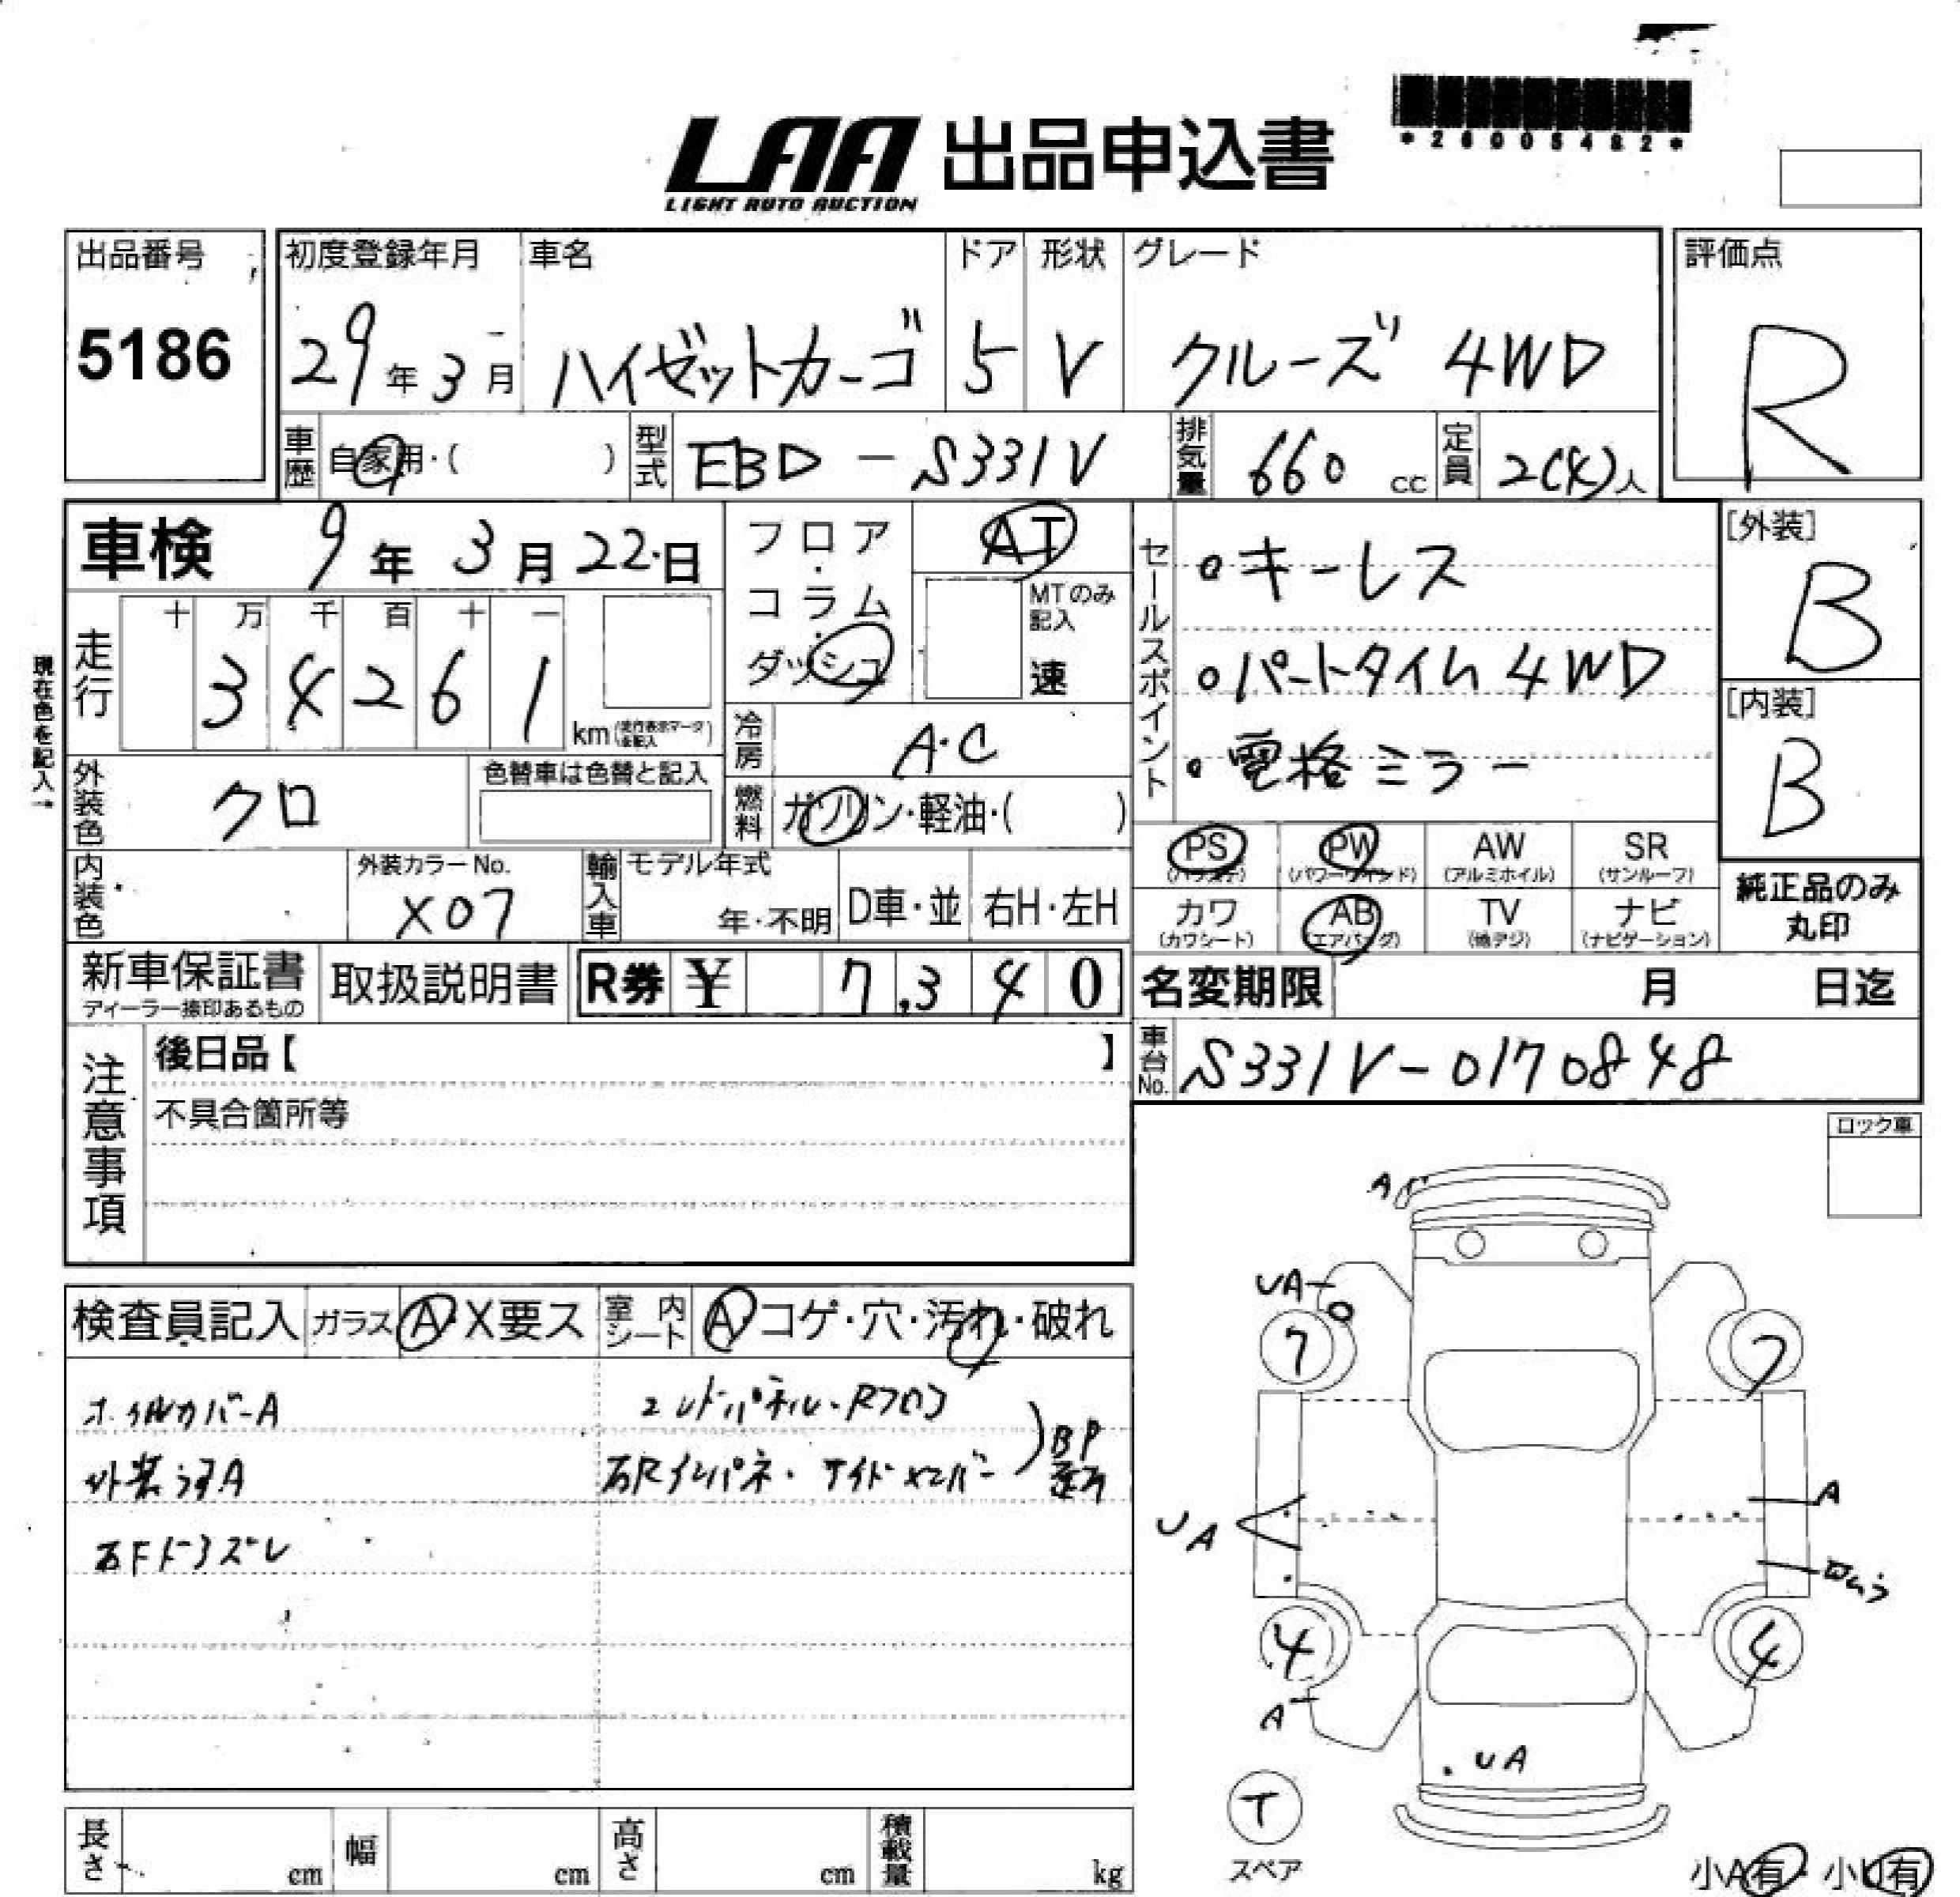 *26005482*
LAA 出品申込書
LIGHT AUTO AUCTION
出品番号
5186
初度登録年月
29年3月
車名
ハイゼットカーゴ
ドア
5
形状
V
グレード
クルーズ 4WD
評価点
R
車歴 自家用・( )
型式 EBD-S331V
排気量 660 cc
定員 2(4)人
車検 9年3月22日
フロア・コラム・ダッシュ
AT
MTのみ記入
速
セールスポイント
・キーレス
・パートタイム4WD
・電格ミラー
[外装]
B
[内装]
B
現在色を記入→
走行
十 万 千 百 十 一
3 4 2 6 1
km(走行表示マーク を記入)
冷房 A・C
外装色 クロ
色替車は色替と記入
燃料 ガソリン・軽油・( )
PS (パワステ)
PW (パワーウインド)
AW (アルミホイル)
SR (サンルーフ)
カワ (カワシート)
AB (エアバッグ)
TV (地デジ)
ナビ (ナビゲーション)
純正品のみ
丸印
内装色
外装カラーNo.
X07
輸入車
モデル年式
年・不明
D車・並
右H・左H
新車保証書
ディーラー捺印あるもの
取扱説明書
R券 ¥ 7,340
名変期限 月 日迄
車台No. S331V-0170848
注意事項
後日品【 】
不具合箇所等
ロック車
検査員記入
ガラス A・X要ス
室内シート A コゲ・穴・汚れ・破れ
ホイルカバーA
外装うすA
右Fドアズレ
エンドパネル・Rフロア
右Rインパネ・サイドメンバー
BP
A
UA
7
7
UA
A
4
4
A
UA
T
スペア
小A有・小U有
長さ cm
幅 cm
高さ cm
積載量 kg